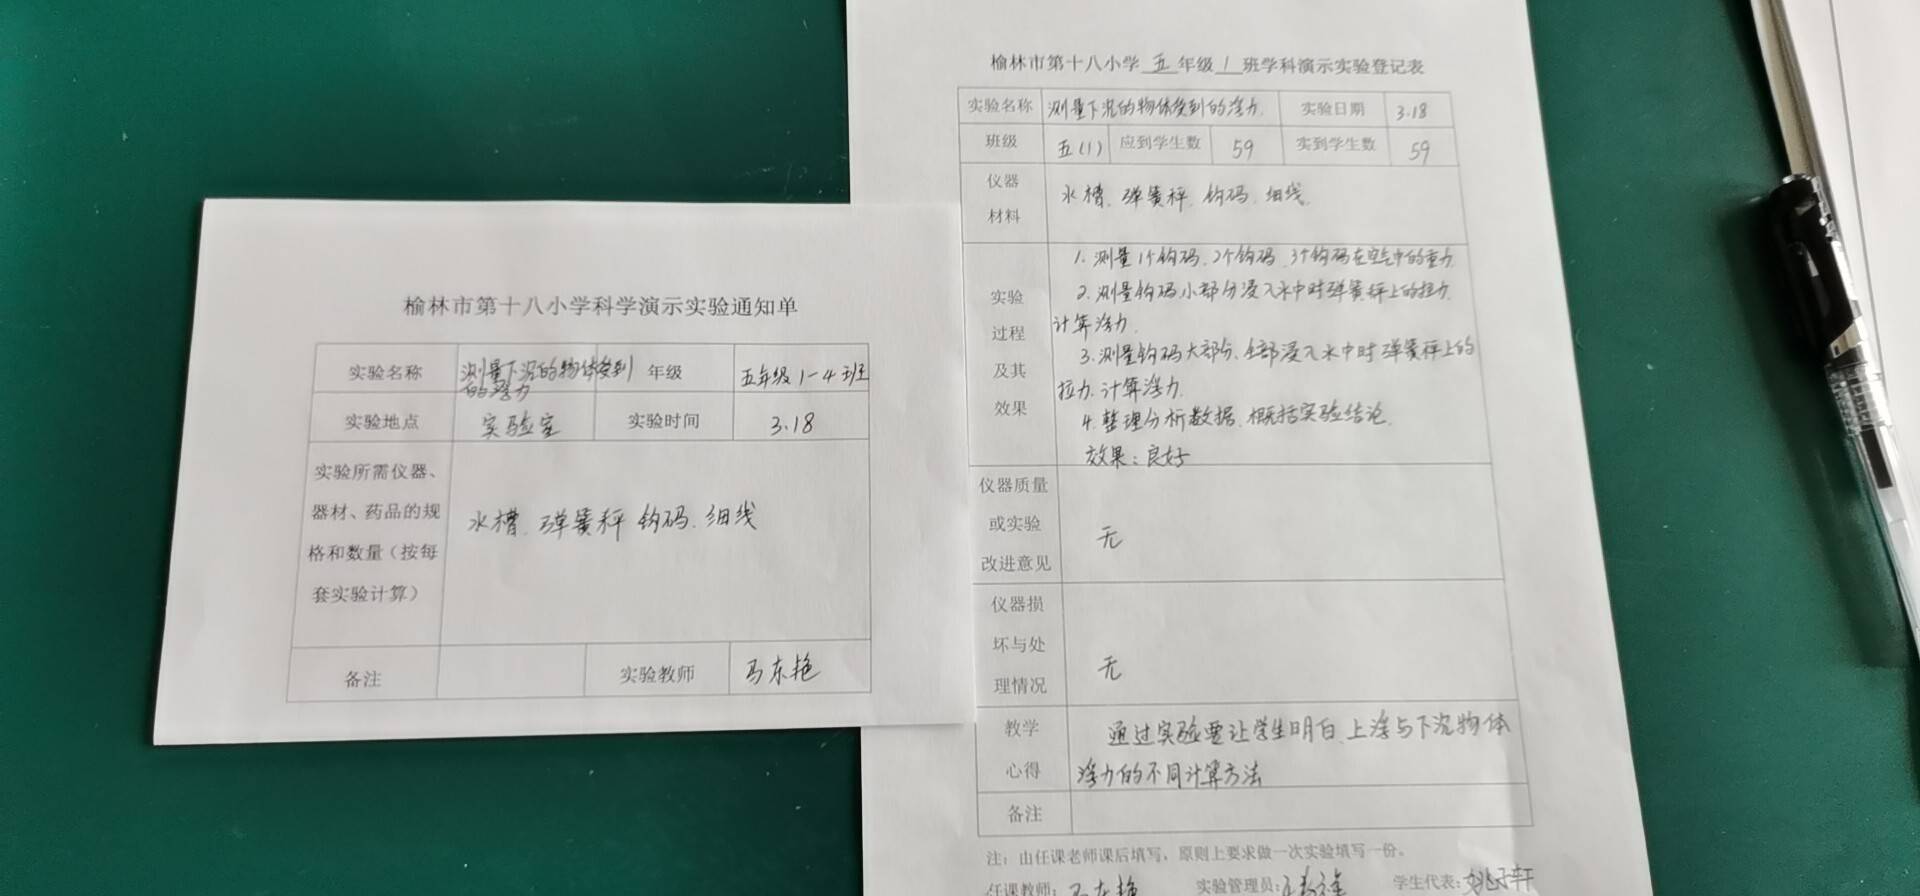 榆林市第十八小学科学演示实验通知单
实验名称 测量下沉的物体受到的浮力 年级 五年级1-4班
实验地点 实验室 实验时间 3.18
实验所需仪器、
器材、药品的规
格和数量（按每
套实验计算）
水槽、弹簧秤 钩码、细线
备注 实验教师 马东艳
榆林市第十八小学 五 年级 1 班学科演示实验登记表
实验名称 测量下沉的物体受到的浮力. 实验日期 3.18
班级 五(1) 应到学生数 59 实到学生数 59
仪器
材料
水槽、弹簧秤、钩码、细线.
实验
过程
及其
效果
1. 测量1个钩码、2个钩码、3个钩码在空气中的重力.
2. 测量钩码小部分浸入水中时弹簧秤上的拉力.
计算浮力.
3. 测量钩码大部分、全部浸入水中时弹簧秤上的
拉力.计算浮力.
4. 整理分析数据、概括实验结论.
效果：良好
仪器质量
或实验
改进意见
无
仪器损
坏与处
理情况
无
教学
心得
通过实验要让学生明白、上浮与下沉物体
浮力的不同计算方法
备注
注：由任课老师课后填写，原则上要求做一次实验填写一份。
任课教师: 马东艳 实验管理员: 学生代表: 姚子轩